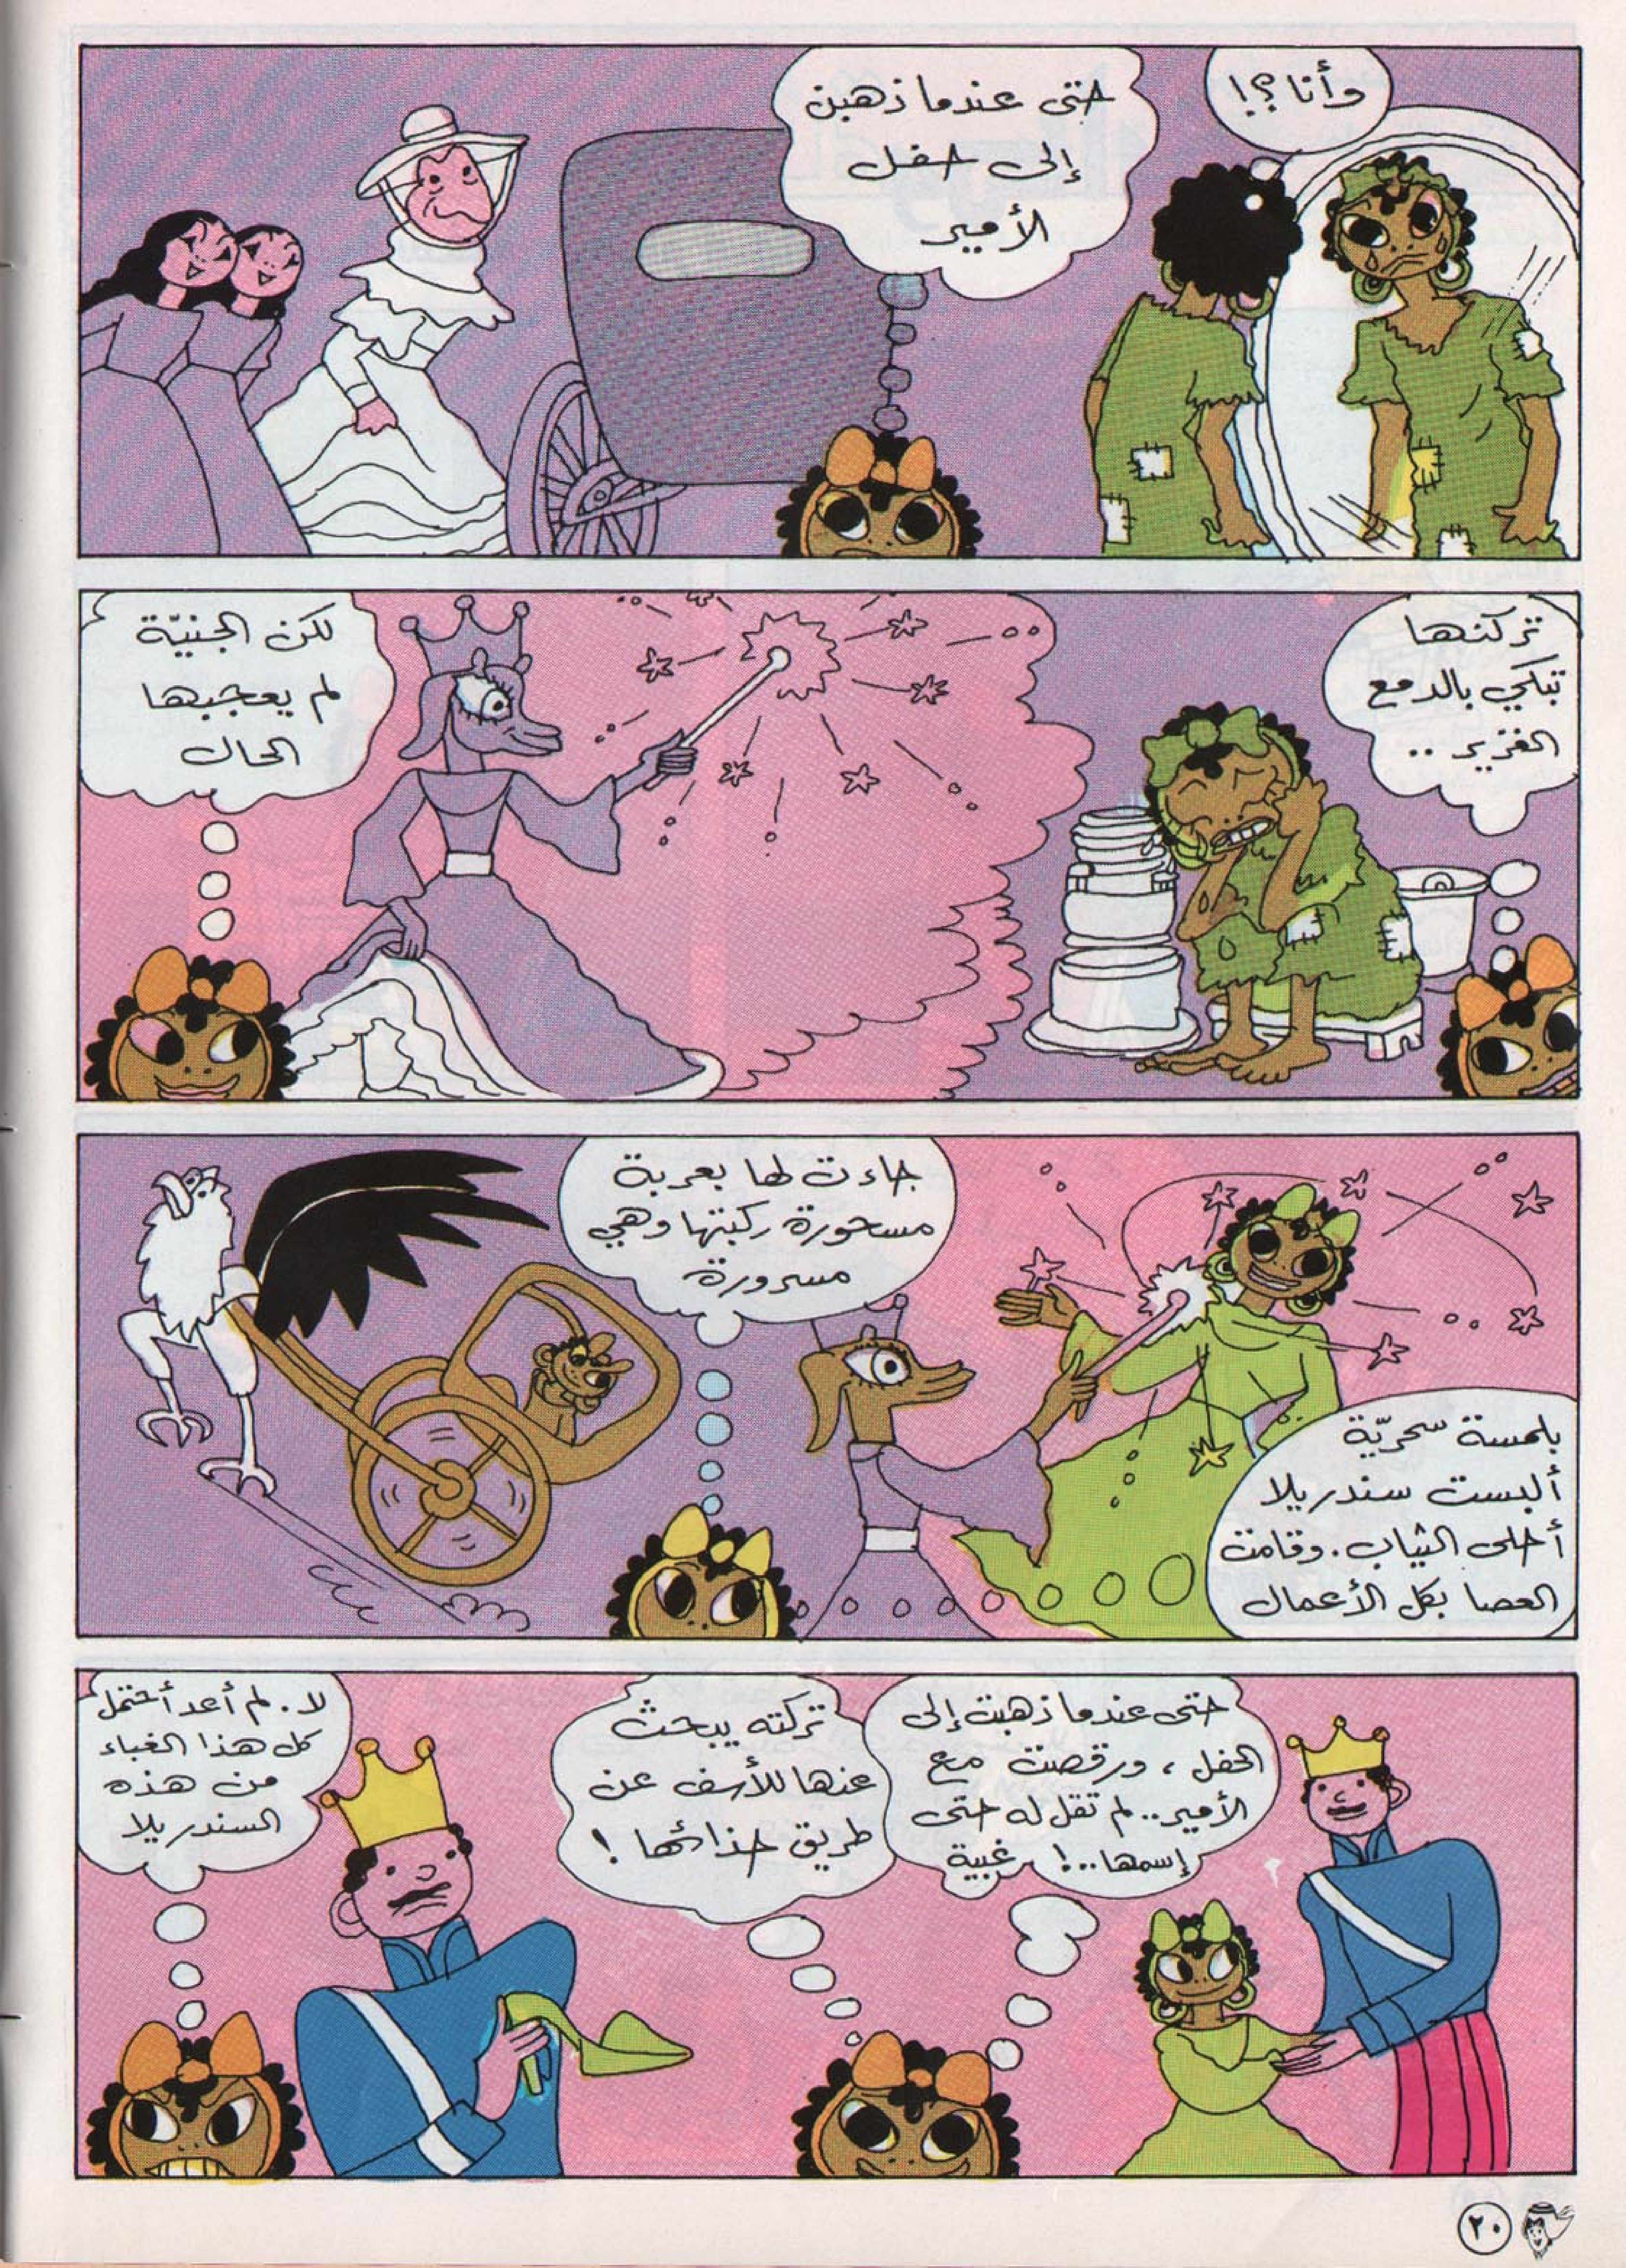 وأنا؟!
حتى عندما ذهبن
إلى حفل
الأمير
تركنها
تبكي بالدمع
الغزير ..
لكن الجنيّة
لم يعجبها
الحال
بلمسة سحريّة
ألبست سندريلا
أحلى الثياب. وقامت
العصا بكل الأعمال
جاءت لها بعربة
مسحورة ركبتها وهي
مسرورة
حتى عندما ذهبت إلى
الحفل ، ورقصت مع
الأمير.. لم تقل له حتى
إسمها..! غبية
تركته يبحث
عنها للأسف عن
طريق حذائها !
لا. لم أعد أحتمل
كل هذا الغباء
من هذه
السندريلا
٢٠